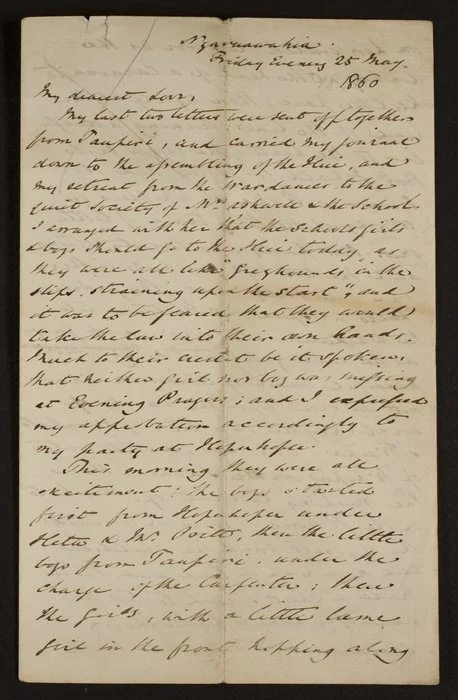 Ngaruawahia
Friday Evening 25 May
1860
My dearest Love,
My last two letters were sent off together
from Taupiri, and carried my journal
down to the assembling of the Hui, and
my retreat from the War dances to the
quiet Society of Mrs Ashwell & the School.
I arranged with her that the Schools girls
& boys should go to the Hui today, as
they were all like "greyhounds in the
slips, straining upon the start", and
it was to be feared that they would
take the law into their own hands.
Much to their credit be it spoken,
that neither girl nor boy was missing
at Evening Prayers; and I expressed
my approbation accordingly to
my party at Hopuhopu.
This morning they were all
excitement: the boys started
first from Hopuhopu under
Heta & Mr, then the little
boys from Taupiri, under the
charge of the Carpenter; then
the girls, with a little lame
girl in the front hopping along